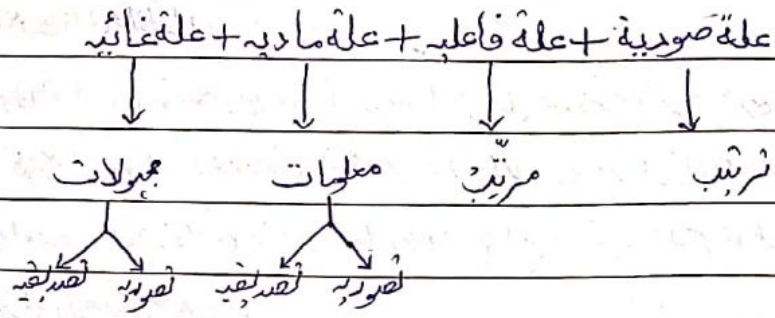 علة صورية + علة فاعليه + علة ماديه + علة غائيه
ترتيب مرتِّب معلومات مجہولات
تصوريه تصديقيه تصوريه تصديقيه